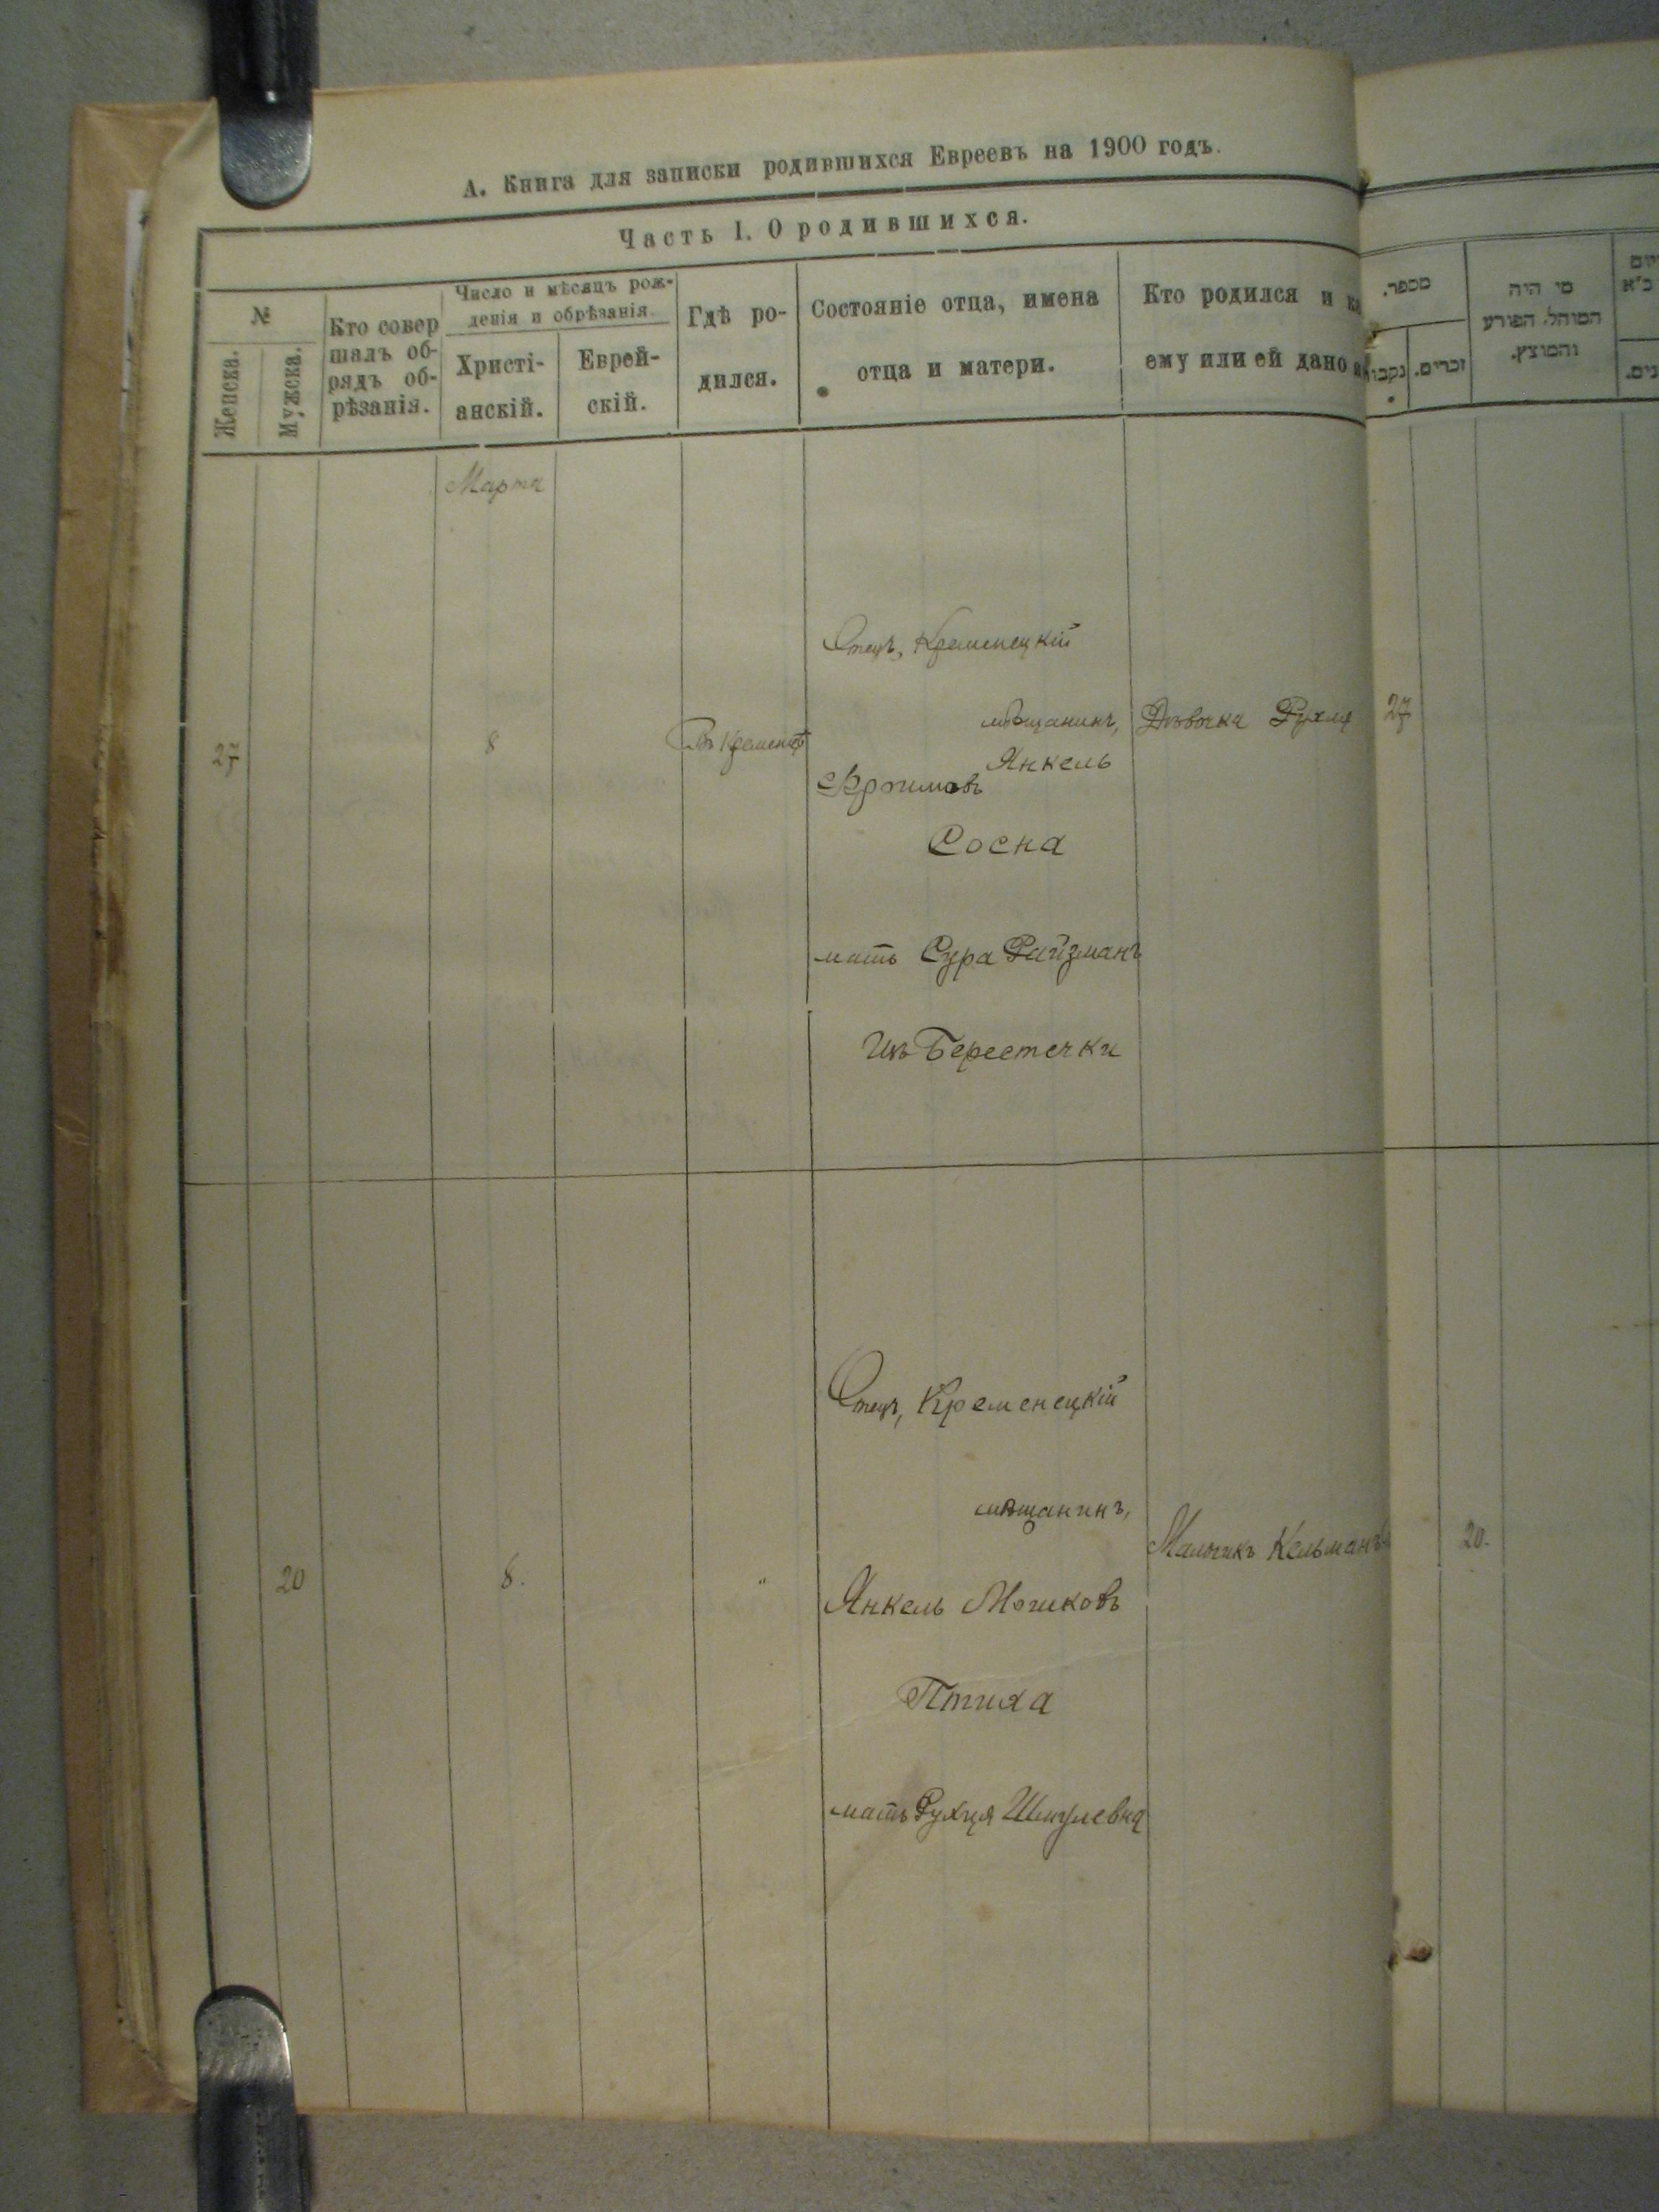 А. Книга для записки родившихся Евреевъ на 1900 годъ.
Часть I. О родившихся.
№
Женска.
Мужска.
Кто совер
шалъ об-
рядъ об-
рѣзанія.
Число и мѣсяцъ рож-
денія и обрѣзанія.
Христі-
анскій.
Еврей-
скій.
Гдѣ ро-
дился.
Состояніе отца, имена
отца и матери.
Кто родился и ка
ему или ей дано
מספר.
נקבו
זכרים.
מי היה
המוהל, הפורע
והמוצץ.
Марта
27
8
Въ Кременцѣ
Отецъ, Кременецкій
мѣщанинъ,
Янкель
Фроимовъ
Сосна
мать Сура Райзманъ
Изъ Берестечки
Дѣвочка Рухля
27
20
8.
"
Отецъ, Кременецкій
мѣщанинъ,
Янкель Мошковъ
Птиха
мать Рухця Шмулевна
Мальчикъ Кельманъ
20.